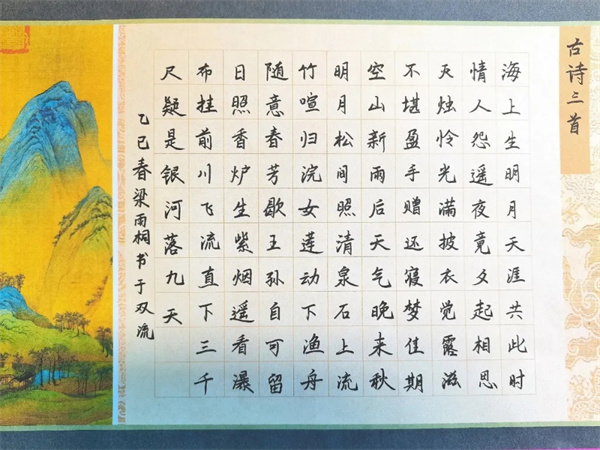 古诗三首
海上生明月天涯共此时
情人怨遥夜竟夕起相思
灭烛怜光满披衣觉露滋
不堪盈手赠还寝梦佳期
空山新雨后天气晚来秋
明月松间照清泉石上流
竹喧归浣女莲动下渔舟
随意春芳歇王孙自可留
日照香炉生紫烟遥看瀑
布挂前川飞流直下三千
尺疑是银河落九天
乙巳春梁雨桐书于双流